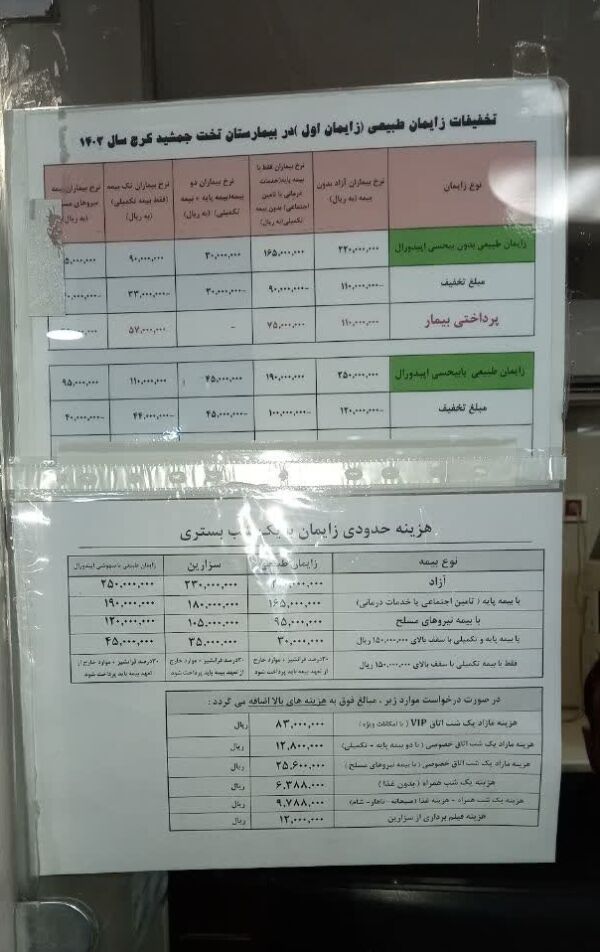 تخفیفات زایمان طبیعی (زایمان اول) در بیمارستان تخت جمشید کرج سال ۱۴۰۳
نوع زایمان | نرخ بیماران آزاد بدون بیمه (به ریال) | نرخ بیماران فقط با بیمه پایه(خدمات درمانی یا تامین اجتماعی) بدون بیمه تکمیلی(به ریال) | نرخ بیماران دو بیمه(بیمه پایه + بیمه تکمیلی) (به ریال) | نرخ بیماران تک بیمه (فقط بیمه تکمیلی) (به ریال) | نرخ بیماران بیمه نیروهای (به ریال)
زایمان طبیعی بدون بیحسی اپیدورال | ۲۲۰,۰۰۰,۰۰۰ | ۱۶۵,۰۰۰,۰۰۰ | ۳۰,۰۰۰,۰۰۰ | ۹۰,۰۰۰,۰۰۰
مبلغ تخفیف | ۱۱۰,۰۰۰,۰۰۰- | ۹۰,۰۰۰,۰۰۰- | ۳۰,۰۰۰,۰۰۰- | ۳۳,۰۰۰,۰۰۰-
پرداختی بیمار | ۱۱۰,۰۰۰,۰۰۰ | ۷۵,۰۰۰,۰۰۰ | - | ۵۷,۰۰۰,۰۰۰
زایمان طبیعی بابیحسی اپیدورال | ۲۵۰,۰۰۰,۰۰۰ | ۱۹۰,۰۰۰,۰۰۰ | ۴۵,۰۰۰,۰۰۰ | ۱۱۰,۰۰۰,۰۰۰ | ۹۵,۰۰۰,۰۰۰
مبلغ تخفیف | ۱۲۰,۰۰۰,۰۰۰- | ۱۰۰,۰۰۰,۰۰۰- | ۴۵,۰۰۰,۰۰۰- | ۴۴,۰۰۰,۰۰۰- | ۴۰,۰۰۰,۰۰۰-
هزینه حدودی زایمان با یک شب بستری
نوع بیمه | زایمان طبیعی | سزارین | زایمان طبیعی با بیهوشی اپیدورال
آزاد | ۲۳۰,۰۰۰,۰۰۰ | ۲۵۰,۰۰۰,۰۰۰
با بیمه پایه (تامین اجتماعی یا خدمات درمانی) | ۱۶۵,۰۰۰,۰۰۰ | ۱۸۰,۰۰۰,۰۰۰ | ۱۹۰,۰۰۰,۰۰۰
با بیمه نیروهای مسلح | ۹۵,۰۰۰,۰۰۰ | ۱۰۵,۰۰۰,۰۰۰ | ۱۲۰,۰۰۰,۰۰۰
با بیمه پایه و تکمیلی با سقف بالای ۱۵۰,۰۰۰,۰۰۰ ریال | ۳۰,۰۰۰,۰۰۰ | ۳۵,۰۰۰,۰۰۰ | ۴۵,۰۰۰,۰۰۰
فقط با بیمه تکمیلی با سقف بالای ۱۵۰,۰۰۰,۰۰۰ ریال | ۳۰درصد فرانشیز + موارد خارج از تعهد بیمه باید پرداخت شود | ۳۰درصد فرانشیز + موارد خارج از تعهد بیمه باید پرداخت شود | ۳۰درصد فرانشیز + موارد خارج از تعهد بیمه باید پرداخت شود
در صورت درخواست موارد زیر ، مبالغ فوق به هزینه های بالا اضافه می گردد :
هزینه مازاد یک شب اتاق VIP (با امکانات ویژه) | ۸۳,۰۰۰,۰۰۰ | ریال
هزینه مازاد یک شب اتاق خصوصی (با دو بیمه پایه + تکمیلی) | ۱۲,۸۰۰,۰۰۰ | ریال
هزینه مازاد یک شب اتاق خصوصی (با بیمه نیروهای مسلح) | ۲۵,۶۰۰,۰۰۰ | ریال
هزینه یک شب همراه (بدون غذا) | ۶,۳۸۸,۰۰۰ | ریال
هزینه یک شب همراه + هزینه غذا (صبحانه - ناهار - شام) | ۹,۷۸۸,۰۰۰ | ریال
هزینه فیلم برداری از سزارین | ۱۲,۰۰۰,۰۰۰ | ریال